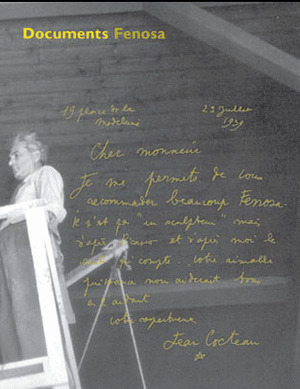 Documents Fenosa
19 place de la
Madeleine
23 Juillet
1939
Cher monsieur
Je me permets de vous
recommander beaucoup Fenosa.
"un sculpteur" mais
d'après et d'après moi le
qui compte. Votre aimable
puissance nous aiderait tous
en l'aidant
votre respectueux
Jean Cocteau